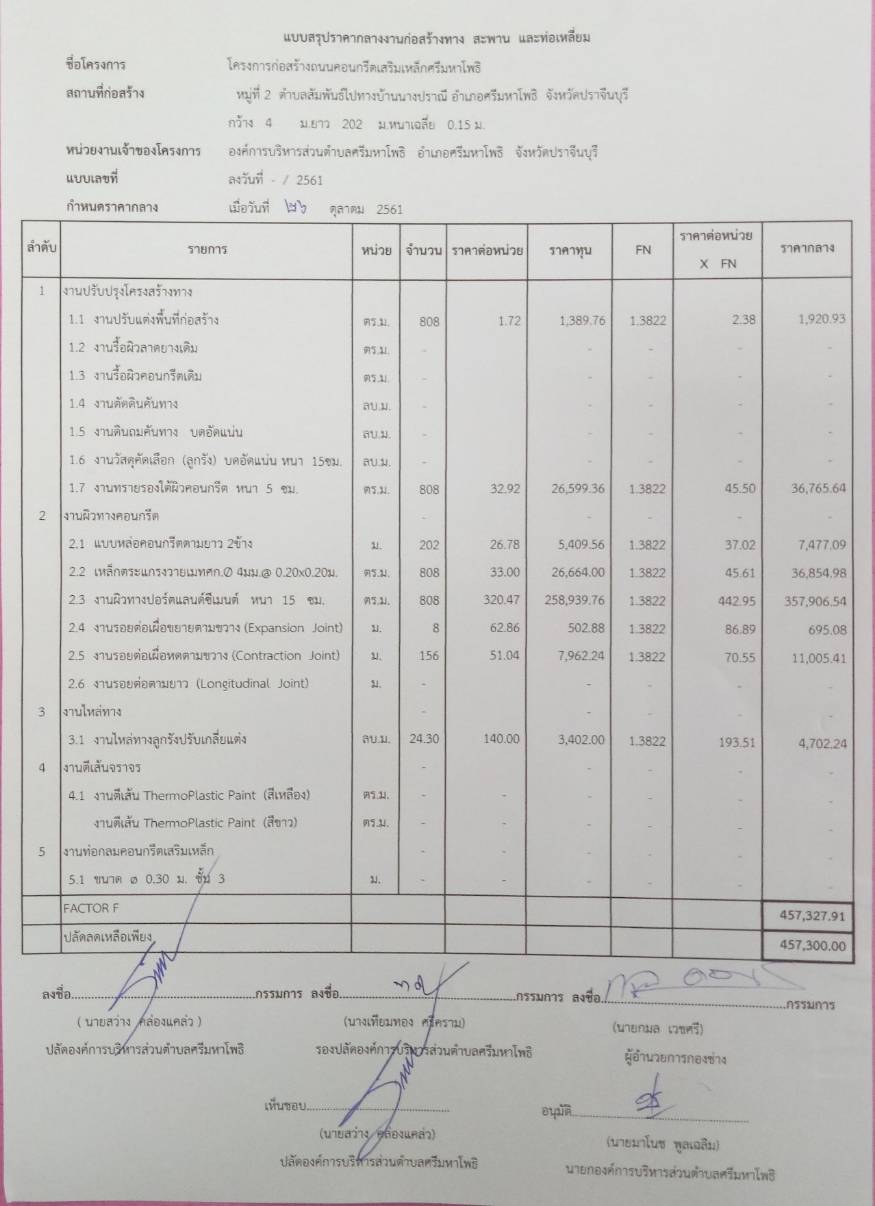 แบบสรุปราคากลางงานก่อสร้างทาง สะพาน และท่อเหลี่ยม
ชื่อโครงการ โครงการก่อสร้างถนนคอนกรีตเสริมเหล็กศรีมหาโพธิ
สถานที่ก่อสร้าง หมู่ที่ 2 ตำบลสัมพันธ์ไปทางบ้านนางปราณี อำเภอศรีมหาโพธิ จังหวัดปราจีนบุรี
กว้าง 4 ม.ยาว 202 ม.หนาเฉลี่ย 0.15 ม.
หน่วยงานเจ้าของโครงการ องค์การบริหารส่วนตำบลศรีมหาโพธิ อำเภอศรีมหาโพธิ จังหวัดปราจีนบุรี
แบบเลขที่ ลงวันที่ - / 2561
กำหนดราคากลาง เมื่อวันที่ ๒๖ ตุลาคม 2561
ลำดับ รายการ หน่วย จำนวน ราคาต่อหน่วย ราคาทุน FN ราคาต่อหน่วย X FN ราคากลาง
1 งานปรับปรุงโครงสร้างทาง
1.1 งานปรับแต่งพื้นที่ก่อสร้าง ตร.ม. 808 1.72 1,389.76 1.3822 2.38 1,920.93
1.2 งานรื้อผิวลาดยางเดิม ตร.ม. - - - - -
1.3 งานรื้อผิวคอนกรีตเดิม ตร.ม. - - - - -
1.4 งานตัดดินคันทาง ลบ.ม. - - - - -
1.5 งานดินถมคันทาง บดอัดแน่น ลบ.ม. - - - - -
1.6 งานวัสดุคัดเลือก (ลูกรัง) บดอัดแน่น หนา 15ซม. ลบ.ม. - - - - -
1.7 งานทรายรองใต้ผิวคอนกรีต หนา 5 ซม. ตร.ม. 808 32.92 26,599.36 1.3822 45.50 36,765.64
2 งานผิวทางคอนกรีต - - - - -
2.1 แบบหล่อคอนกรีตตามยาว 2ข้าง ม. 202 26.78 5,409.56 1.3822 37.02 7,477.09
2.2 เหล็กตระแกรงวายเมทศก.Ø 4มม.@ 0.20x0.20ม. ตร.ม. 808 33.00 26,664.00 1.3822 45.61 36,854.98
2.3 งานผิวทางปอร์ตแลนด์ซีเมนต์ หนา 15 ซม. ตร.ม. 808 320.47 258,939.76 1.3822 442.95 357,906.54
2.4 งานรอยต่อเผื่อขยายตามขวาง (Expansion Joint) ม. 8 62.86 502.88 1.3822 86.89 695.08
2.5 งานรอยต่อเผื่อหดตามขวาง (Contraction Joint) ม. 156 51.04 7,962.24 1.3822 70.55 11,005.41
2.6 งานรอยต่อตามยาว (Longitudinal Joint) ม. - - - - -
3 งานไหล่ทาง - - - - -
3.1 งานไหล่ทางลูกรังปรับเกลี่ยแต่ง ลบ.ม. 24.30 140.00 3,402.00 1.3822 193.51 4,702.24
4 งานตีเส้นจราจร - - - - -
4.1 งานตีเส้น ThermoPlastic Paint (สีเหลือง) ตร.ม. - - - - - -
งานตีเส้น ThermoPlastic Paint (สีขาว) ตร.ม. - - - - - -
5 งานท่อกลมคอนกรีตเสริมเหล็ก - - - - - -
5.1 ขนาด ø 0.30 ม. ชั้น 3 ม. - - - - - -
FACTOR F 457,327.91
ปลัดลดเหลือเพียง 457,300.00
ลงชื่อ........................กรรมการ ลงชื่อ........................กรรมการ ลงชื่อ........................กรรมการ
( นายสว่าง คล่องแคล่ว ) (นางเทียมทอง ศรีคราม) (นายกมล เวชศรี)
ปลัดองค์การบริหารส่วนตำบลศรีมหาโพธิ รองปลัดองค์การบริหารส่วนตำบลศรีมหาโพธิ ผู้อำนวยการกองช่าง
เห็นชอบ........................ อนุมัติ........................
(นายสว่าง คล่องแคล่ว) (นายมาโนช พูลเฉลิม)
ปลัดองค์การบริหารส่วนตำบลศรีมหาโพธิ นายกองค์การบริหารส่วนตำบลศรีมหาโพธิ